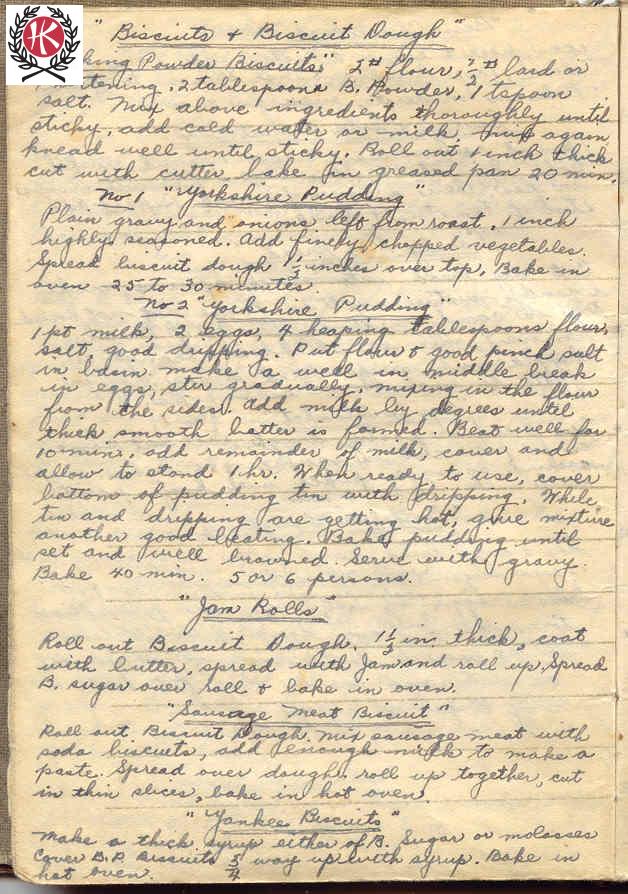 HK
"Biscuits & Biscuit Dough"
king Powder Biscuits" 2# flour, ½# lard or
tening, 2 tablespoons B. Powder, 1 tspoon
salt. Mix above ingredients thoroughly until
sticky, add cold water or milk, mix again
knead well until sticky. Roll out 1 inch thick
cut with cutter, bake in greased pan 20 min.
No 1 "Yorkshire Pudding"
Plain gravy and onions left from roast, 1 inch
highly seasoned. Add finely chopped vegetables.
Spread biscuit dough inches over top. Bake in
oven 25 to 30 minutes.
No 2 "Yorkshire Pudding"
1 pt milk, 2 eggs, 4 heaping tablespoons flour,
salt, good dripping. Put flour & good pinch salt
in basin make a well in middle break
in eggs, stir gradually, mixing in the flour
from the sides. Add milk by degrees until
thick smooth batter is formed. Beat well for
10 min, add remainder of milk, cover and
allow to stand 1 hr. When ready to use, cover
bottom of pudding tin with dripping. While
tin and dripping are getting hot, give mixture
another good beating. Bake pudding until
set and well browned. Serve with gravy.
Bake 40 min. 5 or 6 persons.
"Jam Rolls"
Roll out Biscuit Dough, 1⅓ in. thick, coat
with butter, spread with Jam and roll up. Spread
B. sugar over roll & bake in oven.
"Sausage Meat Biscuit"
Roll out Biscuit Dough. Mix sausage meat with
soda biscuits, add enough milk to make a
paste. Spread over dough, roll up together, cut
in thin slices, bake in hot oven.
"Yankee Biscuits"
Make a thick syrup either of B. Sugar or molasses
Cover B.P. Biscuits ¾ way up with syrup. Bake in
hot oven.